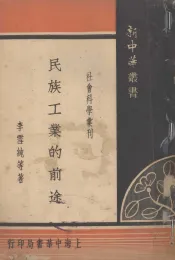 新中華叢書
社會科學彙刊
民族工業的前途
李雪純等著
上海中華書局印行